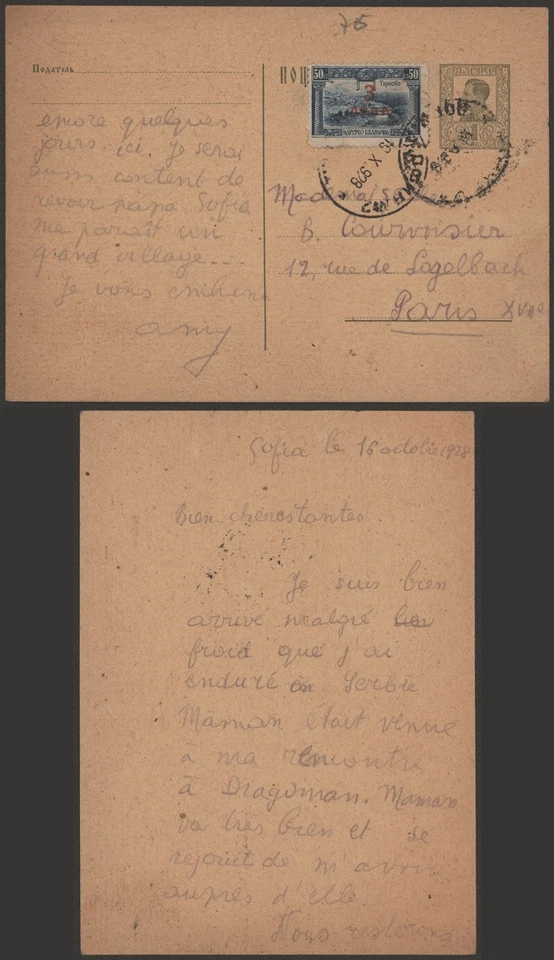 75
Податель
ПОЩ
50 50
Търново
3
ЦАРСТВО БЪЛГАРИЯ
X.928
encore quelques
jours ici. Je serai
aussi content de
revoir papa Sofia
me parait un
grand village....
Je vous embrasse
amy
B. Courvoisier
12, rue de Logelbach
Paris XVIIe
Sofia le 16 octobre 1928
Bien chères tantes
Je suis bien
arrivé malgré les
froid que j'ai
enduré en Serbie
Maman était venue
à ma rencontre
à Dragoman. Maman
va très bien et se
rejouit de m'avoir
auprès d'elle.
Nous resterons